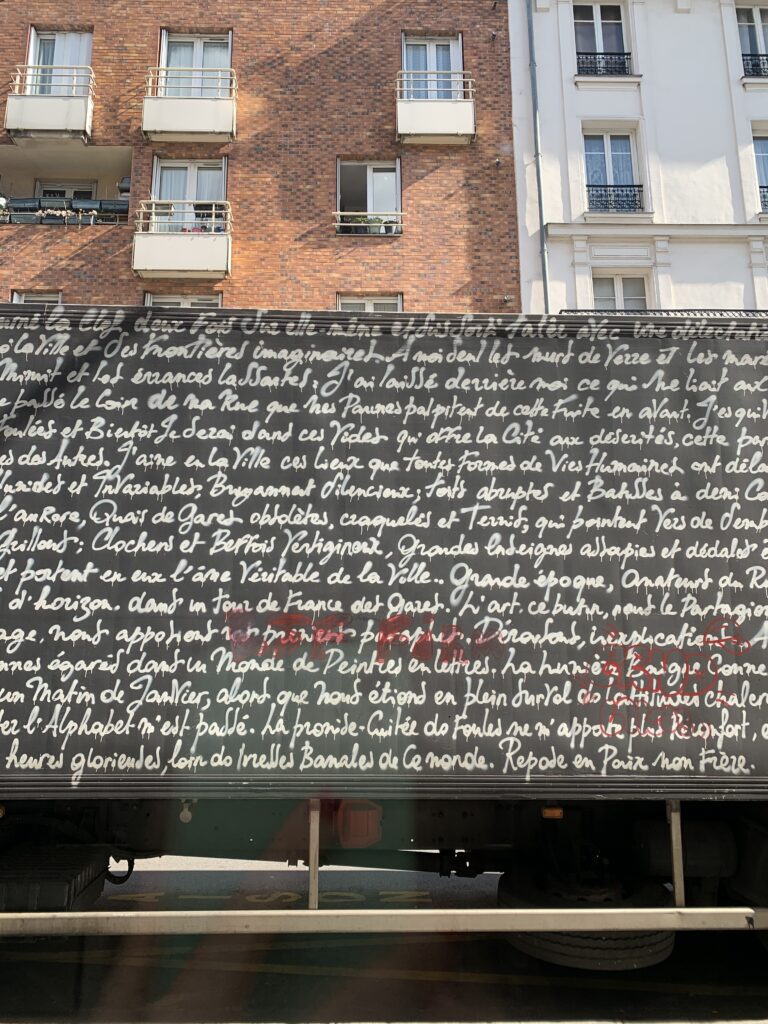 la Clef deux Fois sur elle-même et des forts avec une
la Ville et des Frontières imaginaires. A moi seul les murs de Verre et les
Minuit et les errances lassantes. J'ai laissé derrière moi ce qui me liait aux
passé le Coin de ma Rue que mes Paumes palpitent de cette Fuite en aVant. J'esqui
Foulées et Bientôt Je serai dans ces Vides qu'offre la Cité aux déserités, cette par
es des Autres. J'aime en la Ville ces Lieux que toutes Formes de Vies Humaines ont déla
Humides et InVariables, Bruyamment silencieux; toits abruptes et Batisses à demi Co
l'auRore, Quais de Gares obsolètes, craquelés et Ternis, qui pointent Vers de
Clochers et Beffrois Vertigineux, Grandes Enseignes assapies et dédales
et portent en eux l'âme Véritable de la Ville.. Grande époque, Amateurs du
d'horizon. dans un tour de France des Gares. L'art. ce butin, nous le Partagio
age, nous apposions Déroutons, inexplication
nnes égarés dans un Monde de Peintres en lettres. La lumière Conne
un Matin de JanVier, alors que nous étions en plein surVol
l'Alphabet m'est passé. La promiscuitée des Foules ne m'apporte plus Reconfort,
heures glorieuses, loin des Ivresses Banales de Ce monde. Repose en Paix mon Frère.